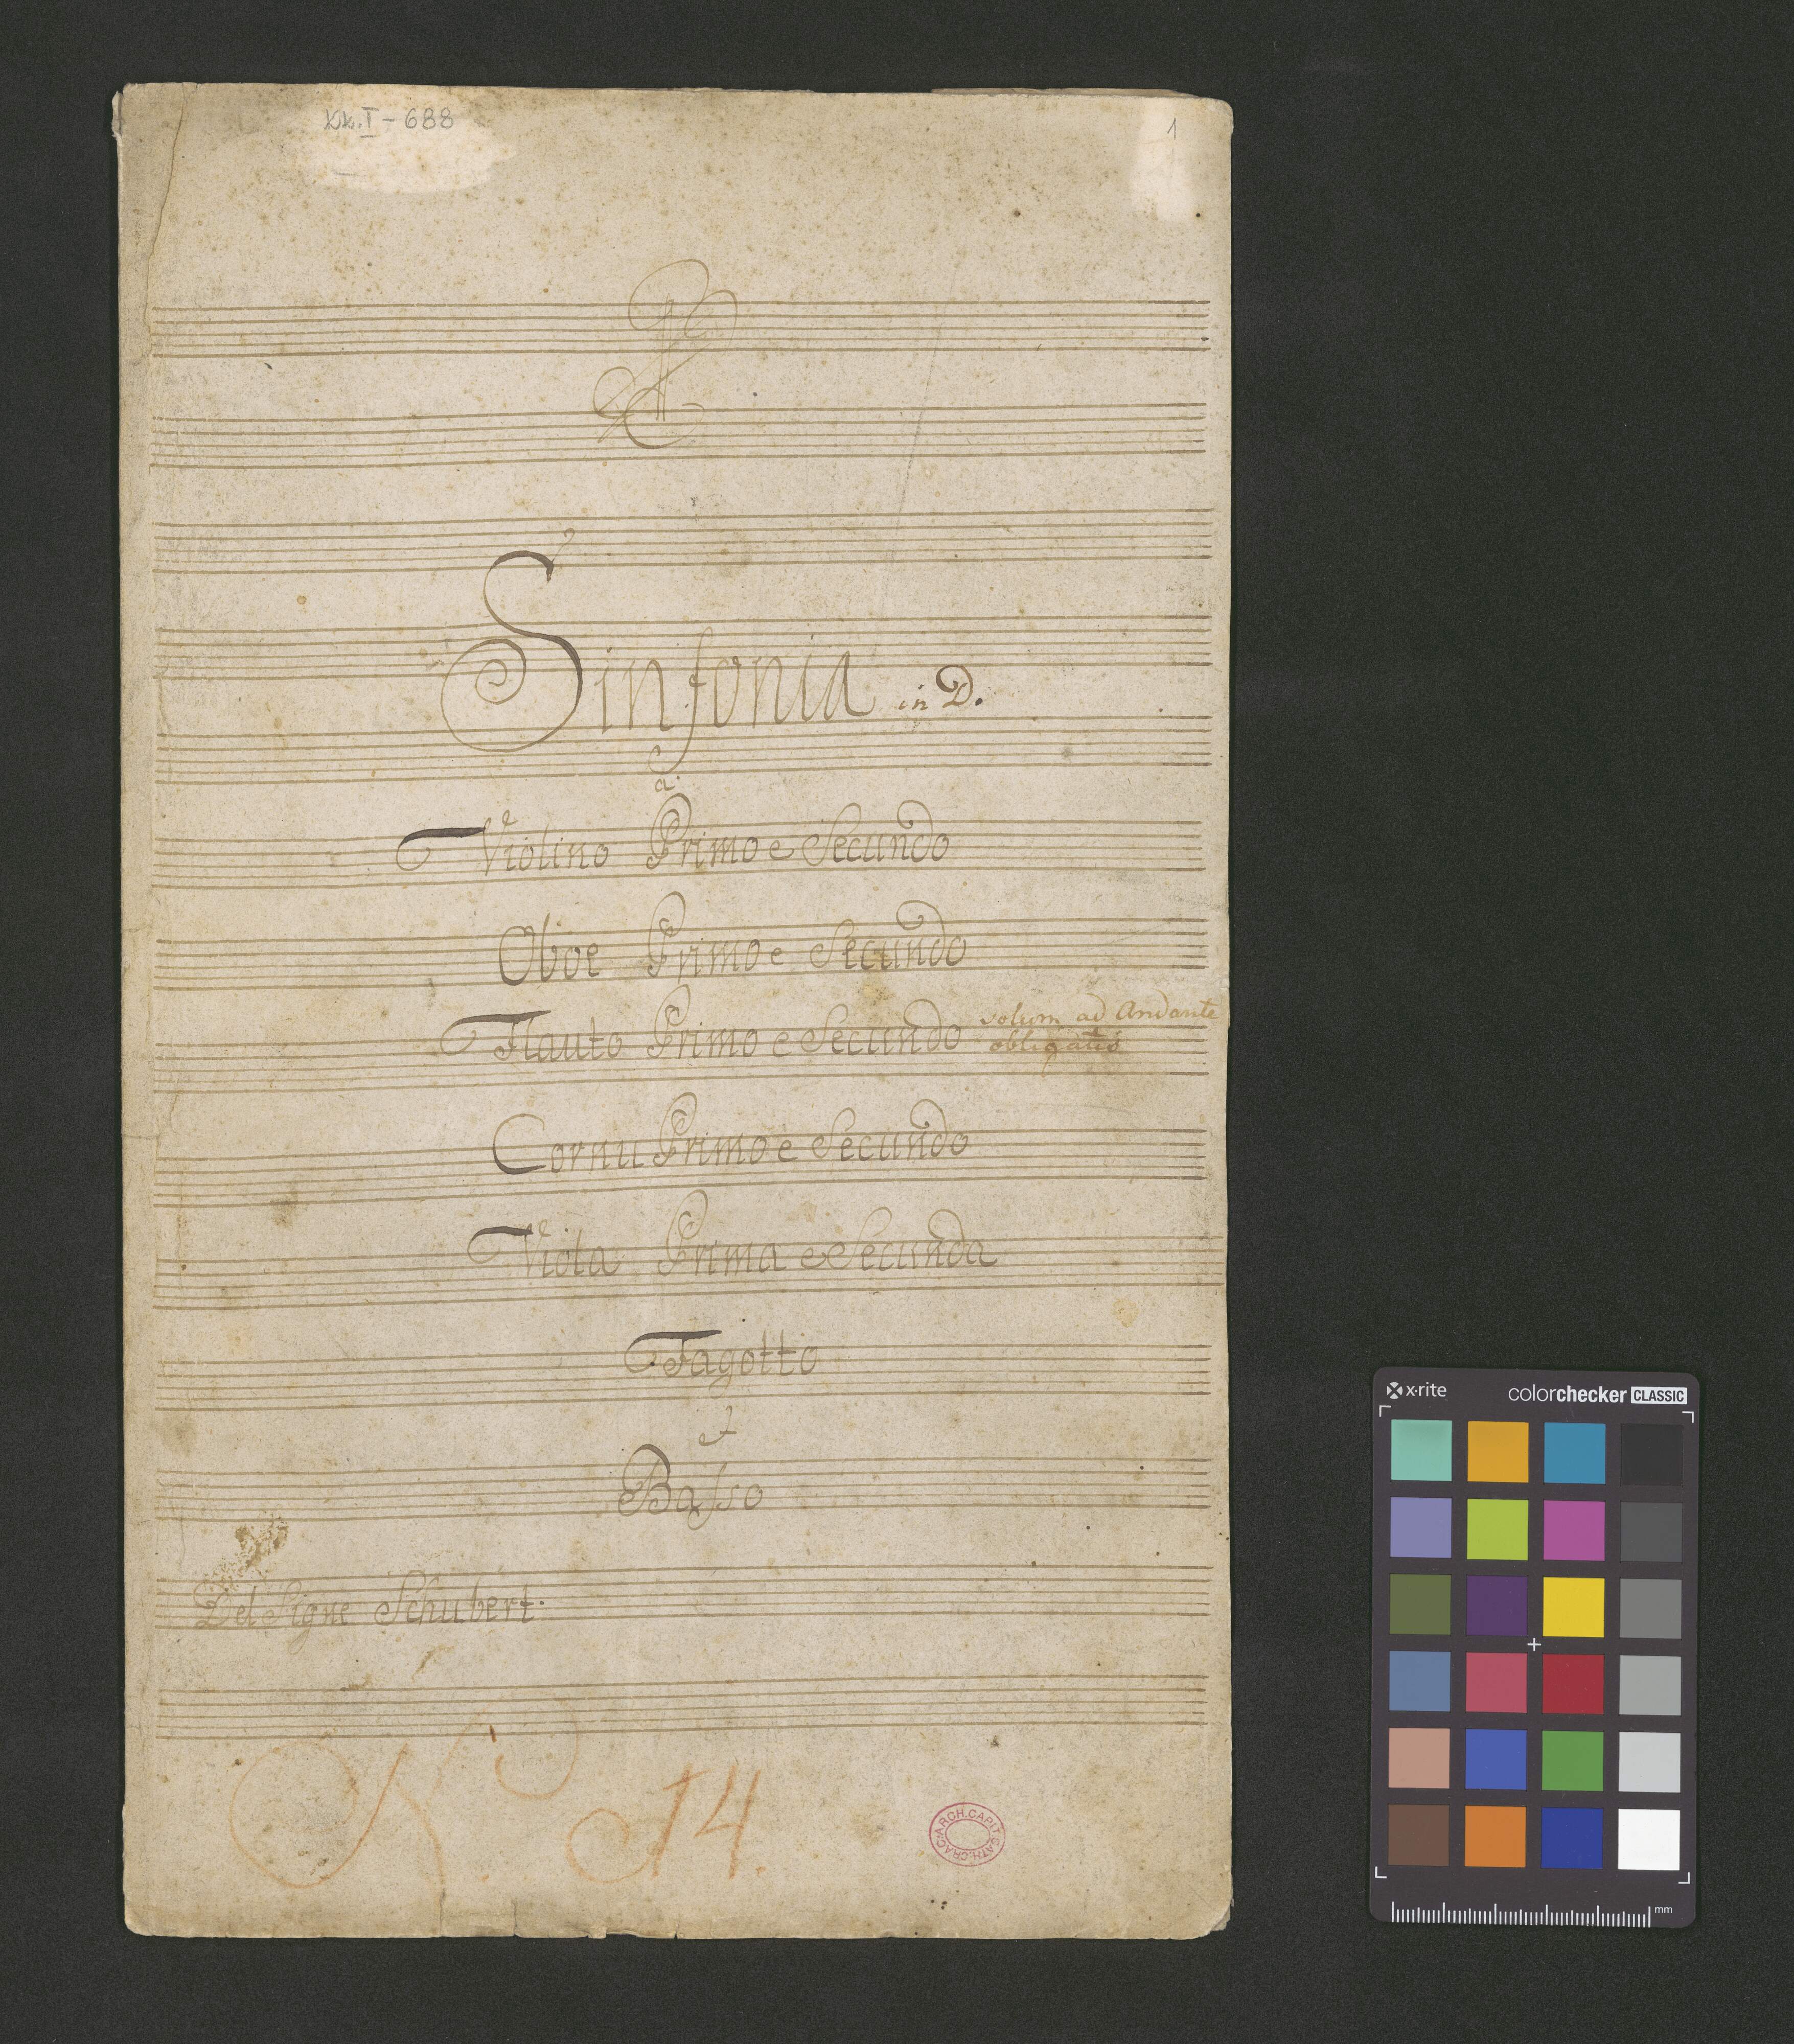 Kk.I-688
1
Sinfonia in D.
a
Violino Primo e Secundo
Oboe Primo e Secundo
Flauto Primo e Secundo solum ad Andante
obligatis
Cornu Primo e Secundo
Viola Prima e Secunda
Fagotto
et
Basso
Del Signe Schubert.
N 14.
ARCH.CAPIT.CATH.CRAC.
x·rite colorchecker CLASSIC
mm